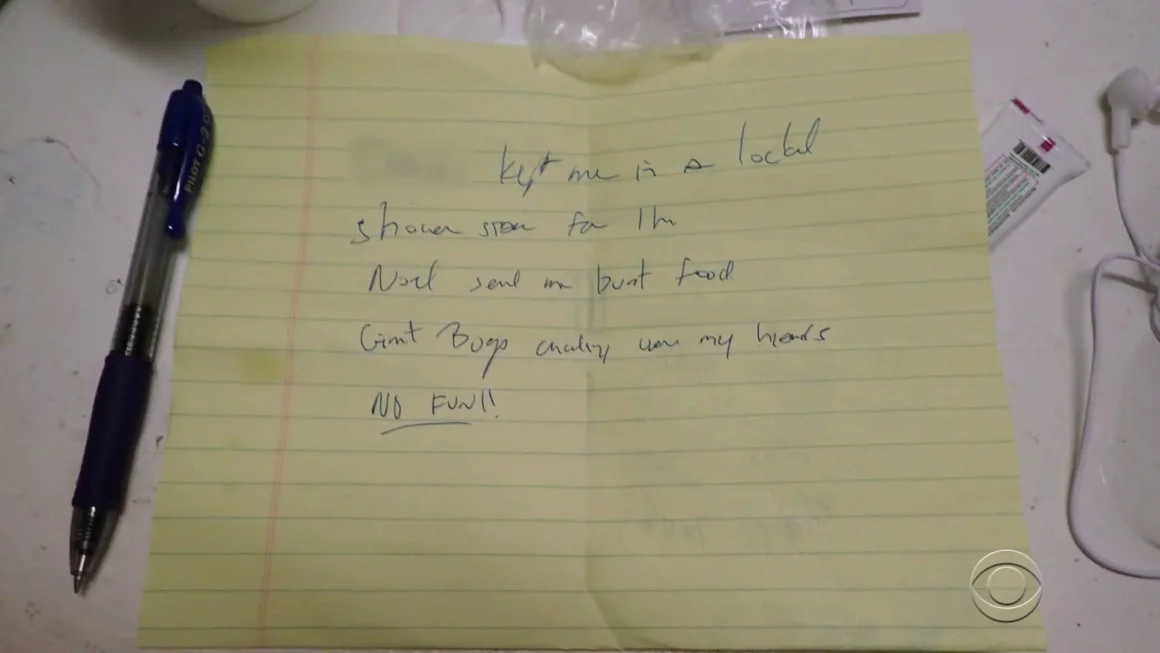 PILOT G-2 07
kept me in a locked
shower stall for 1 hr
Noel send me burnt food
Giant Bugs crawling over my hands
NO FUN!!